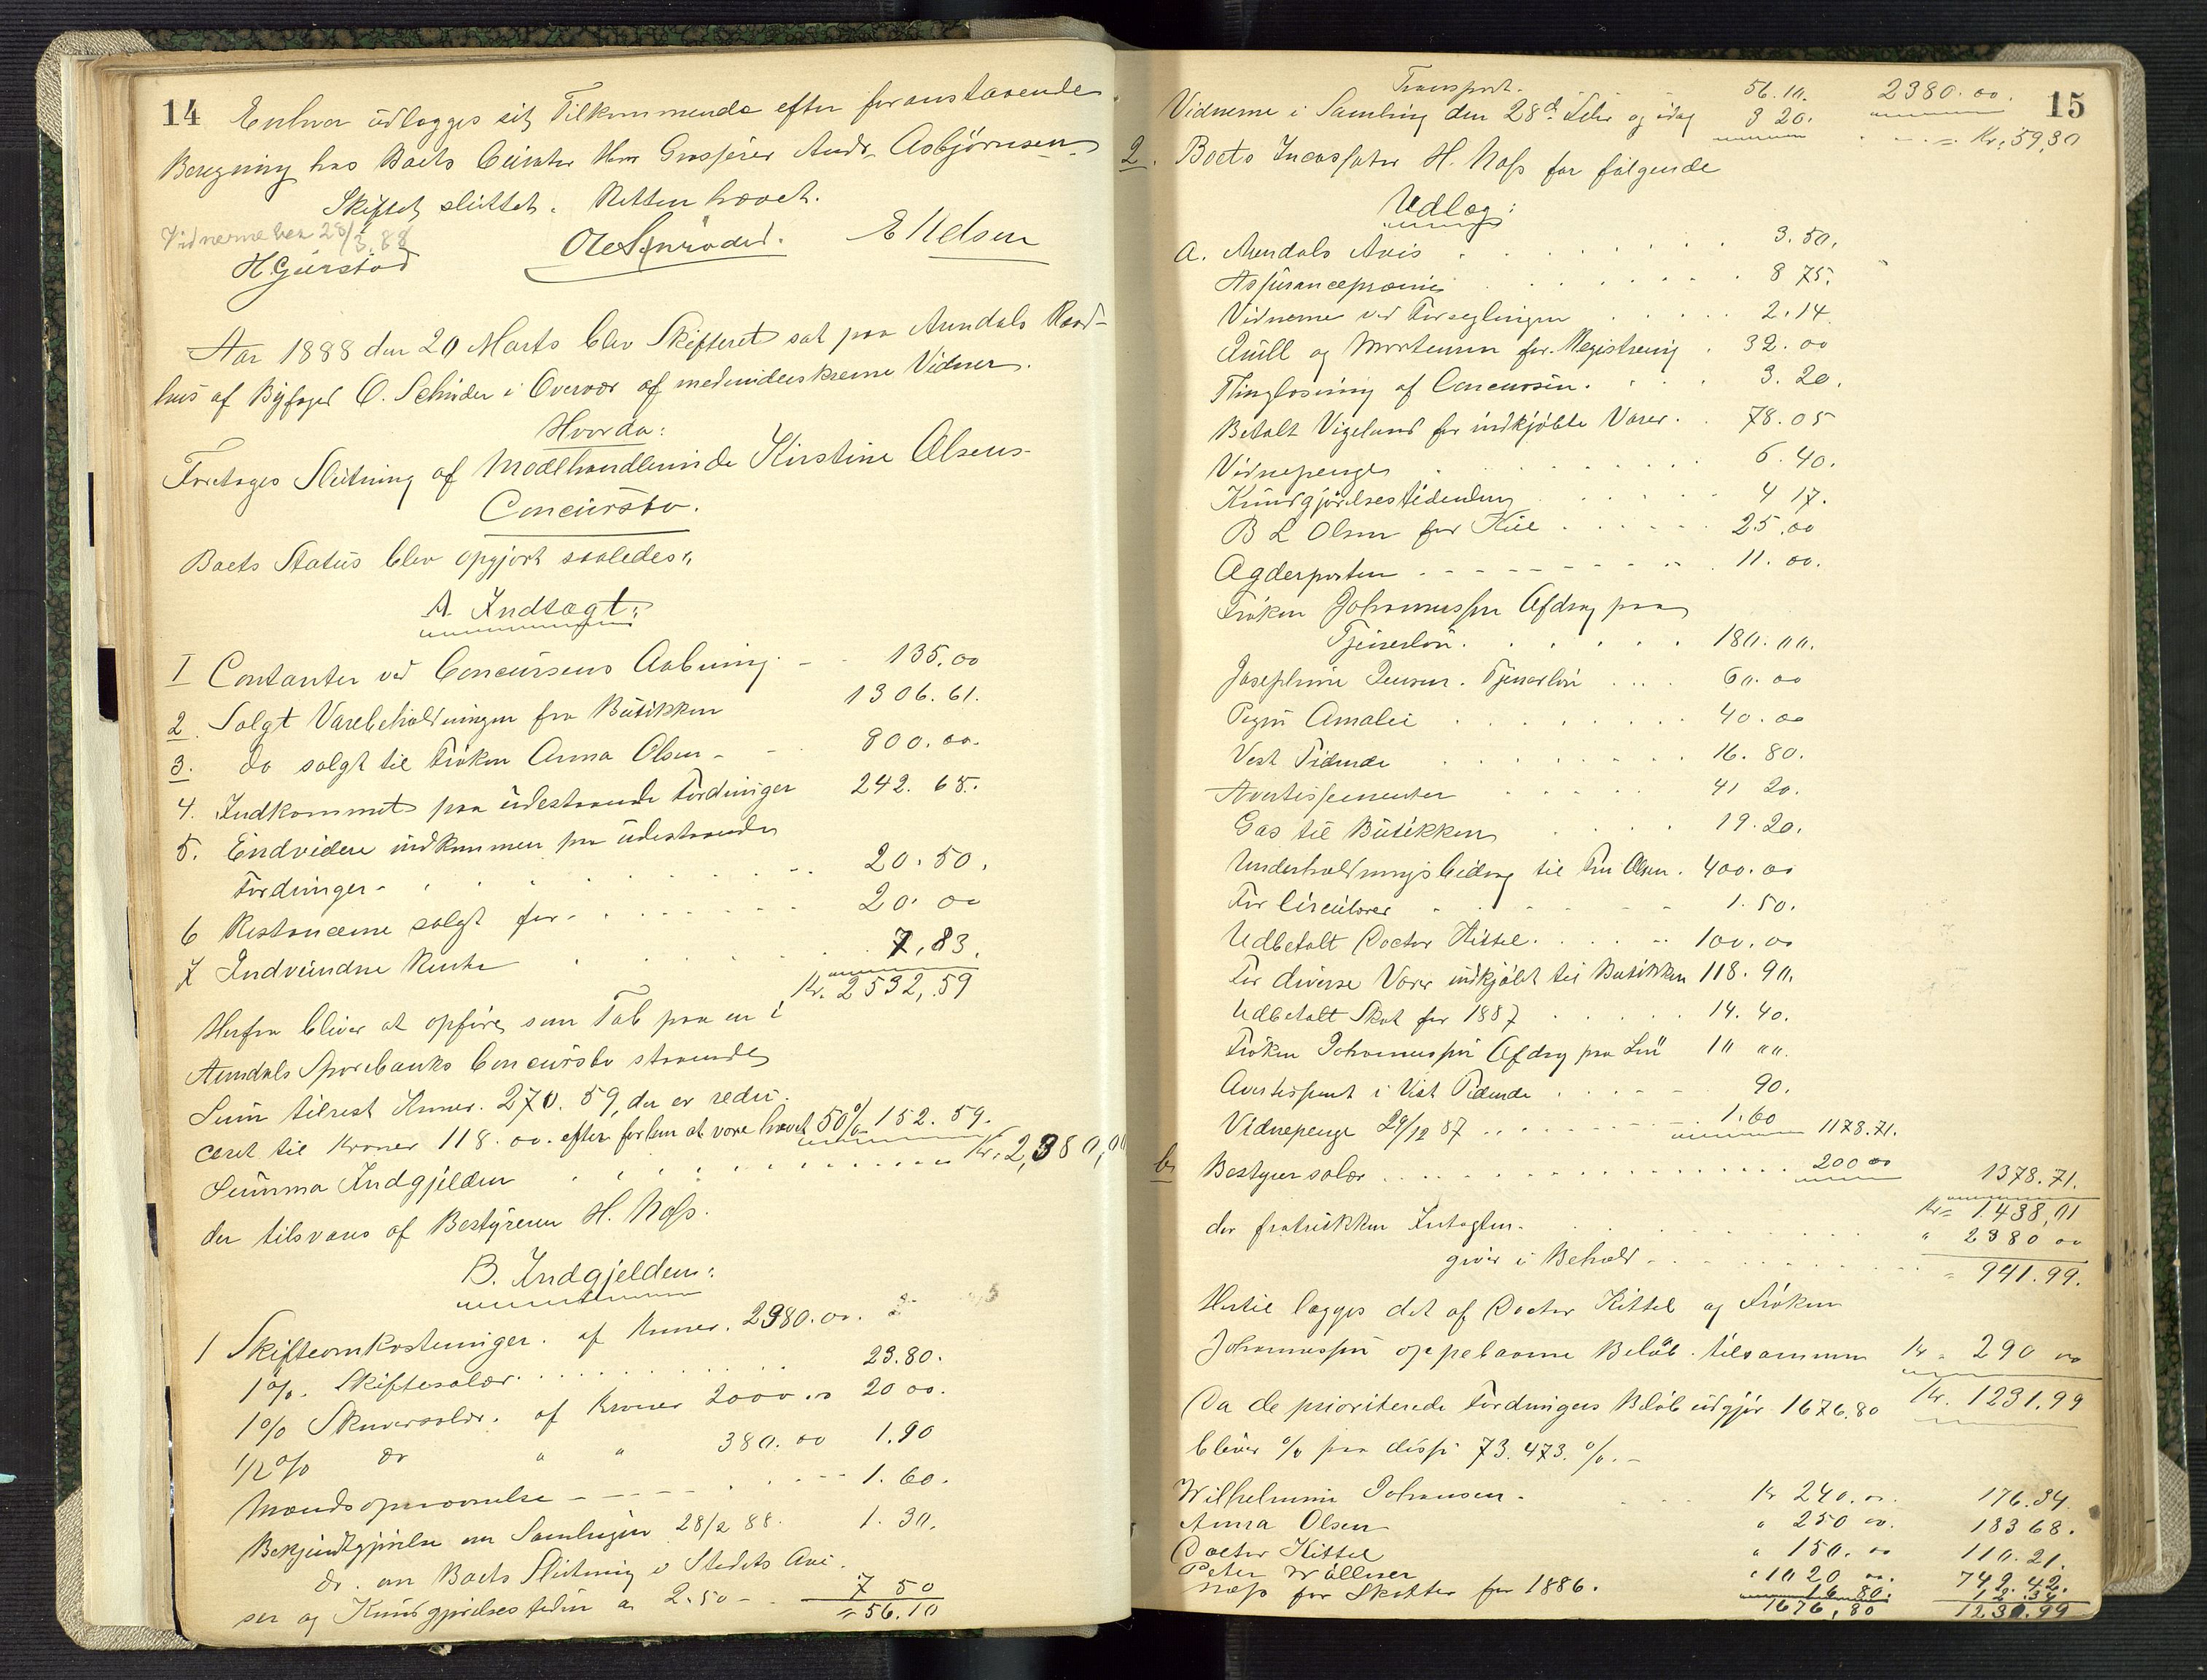 14
Enhver udlægges sit Tilkommende efter foranstaaende
Beregning hos Boets Curator Herr Grosserer Andr. Asbjörnsen
Skiftet sluttet. Retten hævet.
Vidnerne ber 28/3.88
H Gürstad
E Nelsen
Aar 1888 den 20 Marts blev Skifteret sat paa Arendals Raad-
hus af Byfoged O. Schröder i Overvær af medunderskrevne Vidner.
Hvorda:
Foretoges Slutning af Modehandlerinde Kirstine Olsens
Concursbo.
Boets Status blev opgjort saaledes:
A. Indtægt:
I Contanter ved Concursens Aabning - - 135.00
2. Solgt Varebeholdningen fra Butikken 1306.61.
3. do solgt til Fröken Anna Olsen - - 800.00.
4. Indkommet paa udestaaende Fordringer 242.65.
5. Endvidere indkommen paa udestaaende
Fordringer - 20.50.
6 Restancerne solgt for - 20.00
7 Indvundne Renter 7,83.
Kr. 2532,59
Herfra bliver at opföre som Tab paa en i
Arendals Sparebanks Concursbo staaende
Sum tilrest Kroner. 270.59, der er redu-
ceret til Kroner 118.00. efter forlem at være hævet 50% 152.59.
Summa Indgjelden Kr. 2,380,00
der tilsvares af Bestyreren H. Næss.
B. Indgjelden:
1 Skifteomkostninger. af Kroner. 2380.00.
1%. Skiftesalær. 23.80.
1% Skriversalær. af Kroner 2000.00 20 00.
1/2% do " " 380.00 1.90
Mændsopnævnelse - - - - 1.60.
Bekjendtgjörelse om Samlingen 28/2 88. 1.30.
do. om Boets Slutning i Stedets Avi-
ser og Kundgjörelsestidn a 2.50 - 7 50
= 56.10
15
Transport. 56.10. 2380.00.
Vidnerne i Samling den 28de Febr og idag 3 20. = Kr. 59,30
2. Boets Incassator H. Næss for fölgende
Udlæg:
a. Arendals Avis 3.50.
Assurancepræmie 8 75.
Vidnerne ved Forseglingen 2.14
Juell og Mortensen for Registrering 32.00
Thinglæsning af Concursen. 3.20.
Betalt Vigeland for indkjöbte Varer. 78.05
Vidnepenge 6.40.
Kundgjörelsestidenden 4 17.
B L Olsen for Kul 25.00
Agderposten - - - 11.00.
Fröken Johannessen Afdrag paa
Tjenerlön. 180.00.
Josephine Jensen. Tjenerlön 60.00
Pigen Amalie 40.00
Vest Tidende 16.80.
Avertissementer 41 20.
Gas til Butikken 19.20.
Underholdningsbidrag til Fru Olsen. 400.00
For Circulærer 1.50.
Udbetalt Doctor Kittel. 100.00
For diverse Varer indkjöbt til Butikken 118.90.
Udbetalt Skat for 1887 14.40.
Fröken Johannessen Afdrag paa Lön 10 00.
Avertissement i Vest Tidende 90.
Vidnepenge 29/12 87 1.60 1178.71.
b. Bestyrersalær 200 00 1378.71.
Kr= 1438,01
der fratrukken Indtægten. " 2380 00
giver i Behold - = 941.99.
Hertil lægges det af Doctor Kittel og Fröken
Johannessen oppebaarne Belöb tilsammen Kr. 290 00
Kr. 1231.99
Da de prioriterede Fordringers Belöb udgjör 1676.80
bliver % paa disse 73.473.%. -
Wilhelmine Johansen. Kr 240.00. 176.34.
Anna Olsen " 250 00. 183 68.
Doctor Kittel " 150.00 110.21.
Peter Wöllner " 1020 00. 749.42.
Næss for Skatter for 1886. 16 80. 12.34
1676,80 1231.99